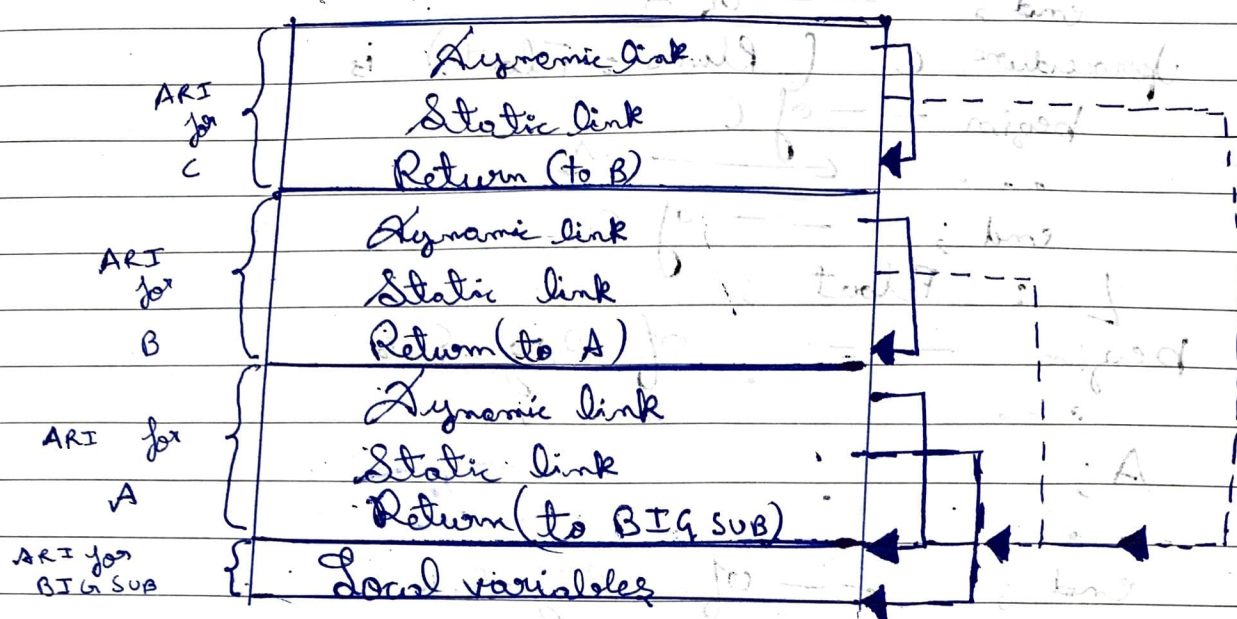 ARI
for
C
Dynamic link
Static link
Return (to B)
ARI
for
B
Dynamic link
Static link
Return (to A)
ARI for
A
Dynamic link
Static link
Return (to BIG SUB)
ARI for
BIG SUB
Local variables